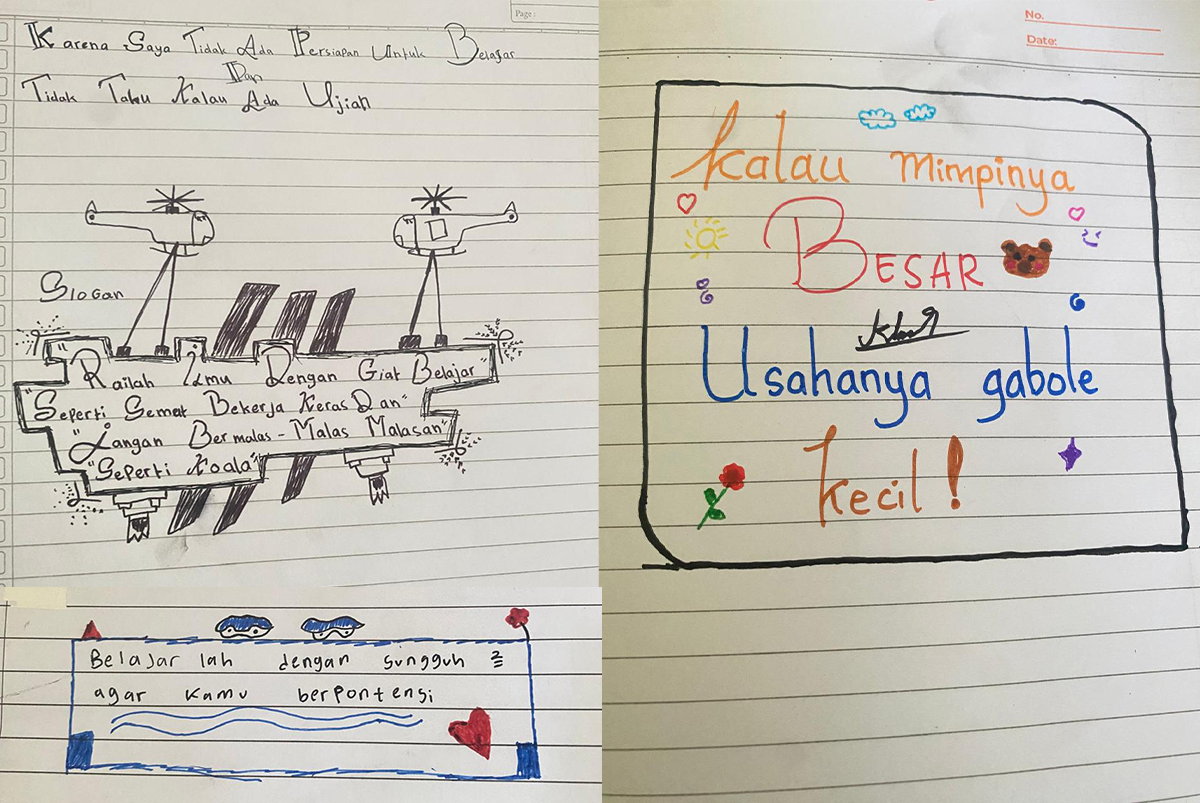 Page:
Karena Saya Tidak Ada Persiapan Untuk Belajar
Dan
Tidak Tahu Kalau Ada Ujian
Slogan
"Railah Ilmu Dengan Giat Belajar"
"Seperti Semut Bekerja Keras Dan"
"Jangan Bermalas - Malas Malasan"
"Seperti Koala"
Belajar lah dengan sungguh 2
agar kamu berpontensi
No.
Date:
Kalau mimpinya
BESAR
Usahanya gabole
kecil!